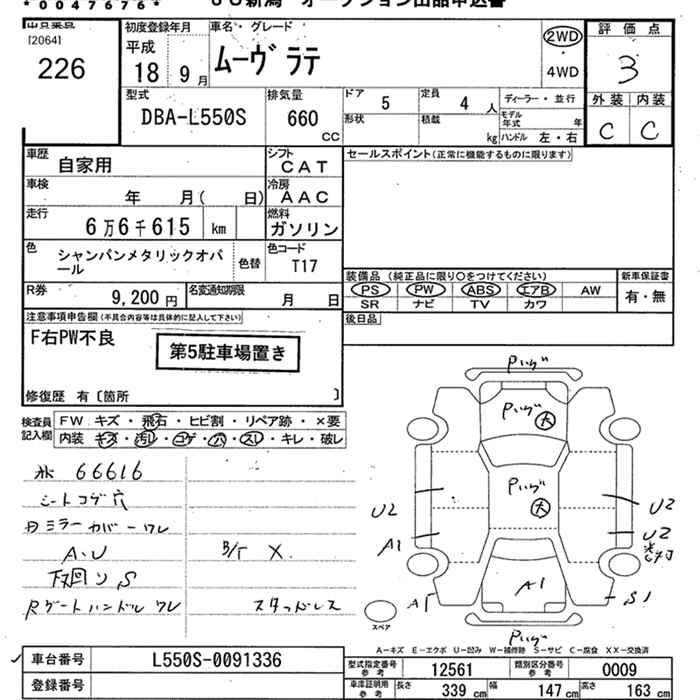 *0047676*
JU新潟 オークション出品申込書
[2064]
226
初度登録年月
平成
18 9月
車名・グレード
ムーヴ ラテ
2WD
4WD
評価点
3
外装 内装
C C
型式
DBA-L550S
排気量
660
CC
ドア 5
定員 4 人
形状
積載
kg
ディーラー・並行
モデル年式 年
ハンドル 左・右
車歴
自家用
シフト
CAT
セールスポイント(正常に機能するものに限ります)
車検
年 月( 日)
冷房
AAC
走行
6万6千615 km
燃料
ガソリン
色
シャンパンメタリックオパール
色替
色コード
T17
R券
9,200円
名変通知期限
月 日
装備品 (純正品に限り○をつけてください)
PS PW ABS エアB AW
SR ナビ TV カワ
新車保証書
有・無
後日品
注意事項申告欄(不具合内容等は具体的に記入して下さい)
F右PW不良
第5駐車場置き
修復歴 有〔箇所 〕
検査員記入欄
FW キズ・飛石・ヒビ割・リペア跡・×要
内装 キズ・汚レ・コゲ・穴・スレ・キレ・破レ
66616
シートコゲ穴
ミラーカバーワレ
A.U
B/T X
下廻リ S
Rゲートハンドルワレ
スタッドレス
大
大
U2
A1
U2
A1
A1
S1
スペア
A−キズ E−エクボ U−凹み W−補修跡 S−サビ C−腐食 XX−交換済
車台番号
L550S-0091336
登録番号
型式指定番号
参考
12561
類別区分番号
参考
0009
車庫証明用
参考
長さ 339 cm
幅 147 cm
高さ 163 cm